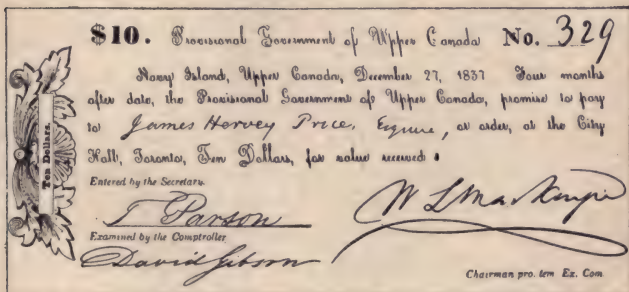 $10. Provisional Government of Upper Canada No. 329
Navy Island, Upper Canada, December 27, 1837 Four months
after date, the Provisional Government of Upper Canada, promise to pay
to James Hervey Price, Esquire, or order, at the City
Hall, Toronto, Ten Dollars, for value received.
Ten Dollars.
Entered by the Secretary.
T Parson
Examined by the Comptroller
David Gibson
W L Mackenzie
Chairman pro. tem Ex. Com